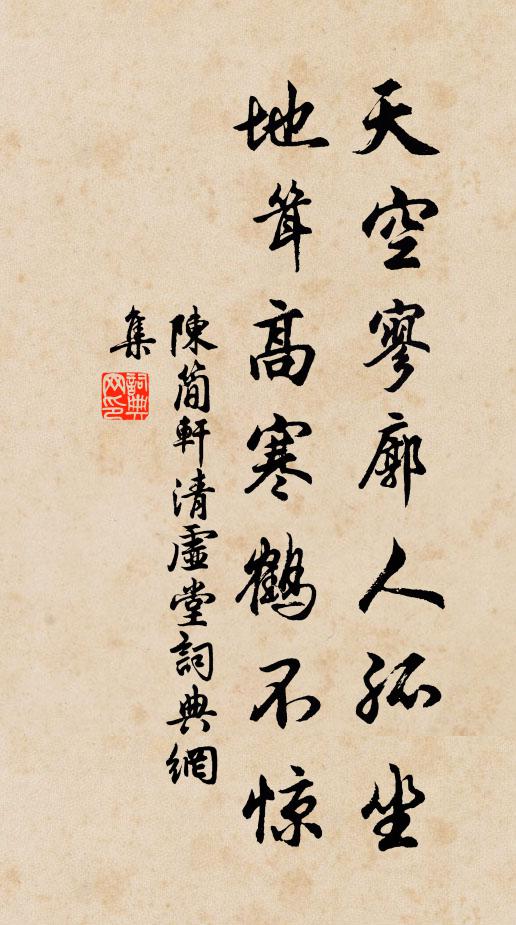 天空寥廓人孤坐
地耸高寒鶴不惊
陳簡軒清虛堂詞典網
集
詞典
网印